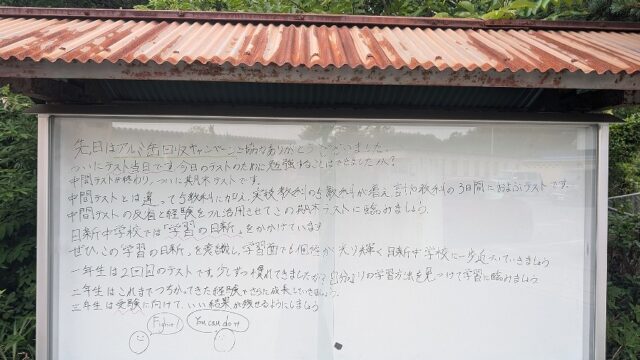 先日はアルミ缶回収キャンペーンご協力ありがとうございました。
ついにテスト当日です。今日のテストのために勉強することはできましたか?
中間テストが終わり、ついに期末テストです。
中間テストとは違って5教科に加え、実技教科の 教科が増え 計 教科の3日間におよぶテストです。
中間テストの反省と経験をフル活用させてこの期末テストに臨みましょう。
日新中学校では「学習の日新」をかかげています
ぜひ、この「学習の日新」を意識し、学習面でも個性が光り輝く日新中学校に一歩近づいていきましょう
一年生は2回目のテストです。少しずつ慣れてきましたか?自分なりの学習方法を見つけて学習に臨みましょう
二年生はこれまでつちかってきた経験でさらに成長していきましょう。
三年生は受験に向けて、いい結果が残せるようにしましょう
Fight!
You can do it